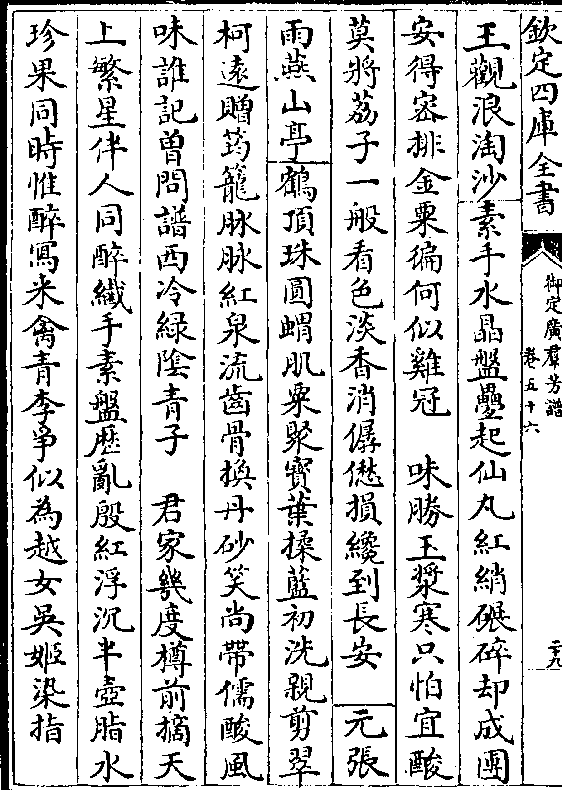 欽定四庫全書
御定廣羣芳譜
卷五十六
王觀浪淘沙素手水晶盤疊起仙丸紅綃碾碎却成團
安得密排金粟徧何似雞冠　味勝玉漿寒只怕宜酸
莫將荔子一般看色淡香消僝僽損纔到長安　元張
雨燕山亭鶴頂珠圓蝟肌粟聚寶葉揉藍初洗親剪翠
柯遠贈筠籠脉脉紅泉流齒骨換丹砂笑尚帶儒酸風
味誰記曽問譜西泠緑陰青子　君家㡬度樽前摘天
上繁星伴人同醉纎手素盤歴亂殷紅浮沉半壺脂水
珍果同時惟醉寫来禽青李争似為越女吳姬染指